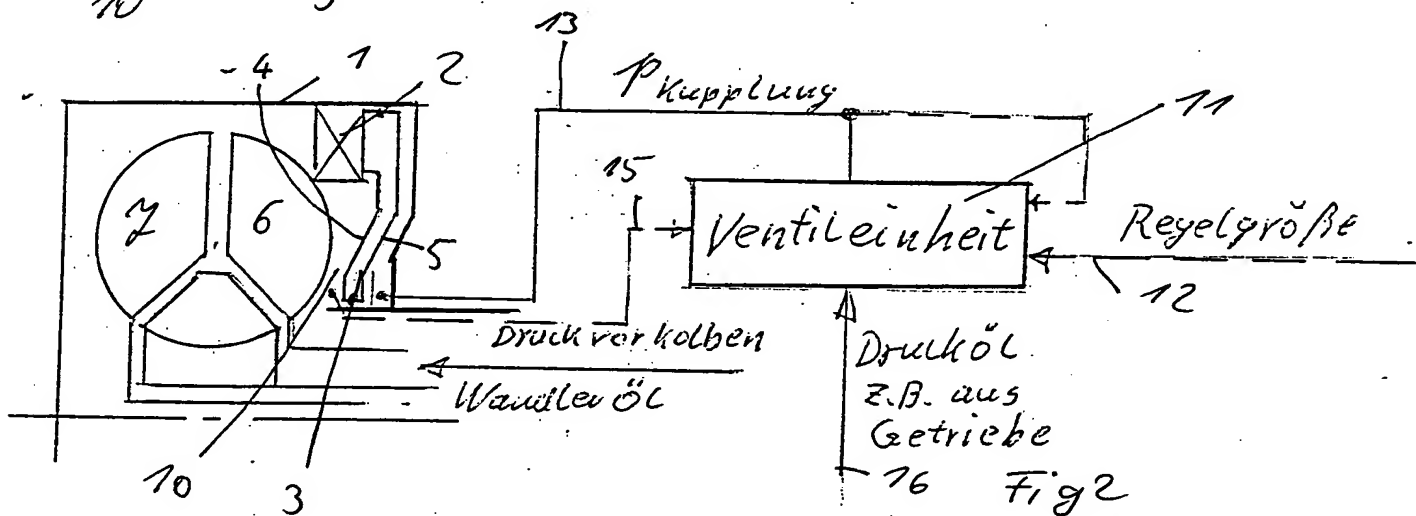 10
13
4 1 2
P Kupplung
11
15
7 6 5
Ventileinheit
Regelgröße
12
Druck vor Kolben
Wandleröl
Drucköl
z.B. aus
Getriebe
10 3 16 Fig 2